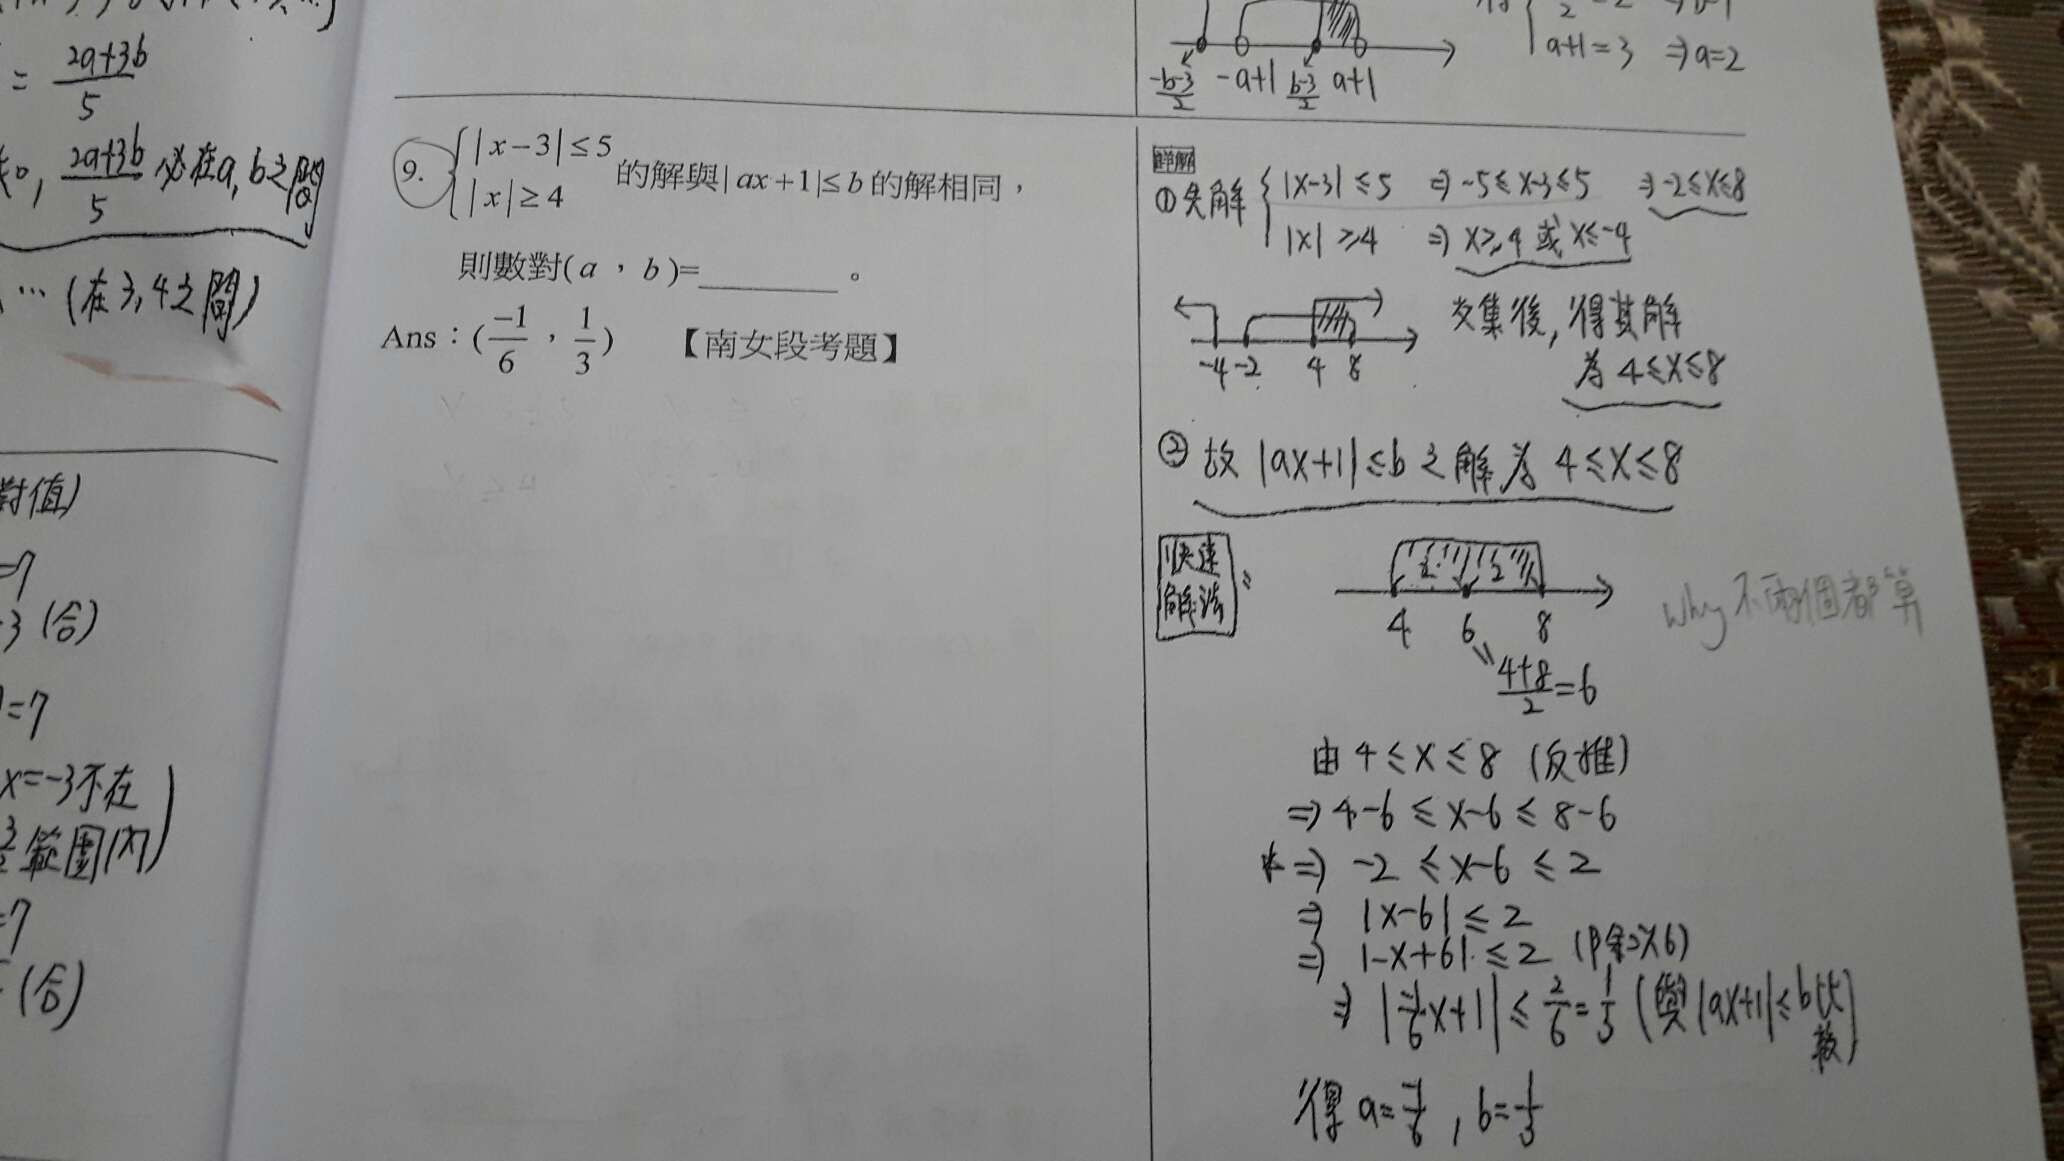 = 2a+3b/5
2a+3b/5 必在a, b之間
… (在3, 4之間)
對值)
=7
-3 (合)
=7
x=-3不在
範圍內)
=7
(合)
-b-3/2 -a+1 b-3/2 a+1
a+1=3 ⇒a=2
9. { |x-3|≤5
|x|≥4 的解與|ax+1|≤b的解相同,
則數對(a,b)=________。
Ans:(-1/6,1/3) 【南女段考題】
詳解
①先解 { |x-3|≤5 ⇒ -5≤x-3≤5 ⇒ -2≤x≤8
|x|≥4 ⇒ x≥4 或 x≤-4
-4 -2 4 8
交集後, 得其解
為 4≤x≤8
② 故 |ax+1|≤b 之解為 4≤x≤8
快速
解法:
2 2
4 6 8
4+8/2=6
why 不兩個都算
由 4≤x≤8 (反推)
⇒ 4-6 ≤ x-6 ≤ 8-6
⇒ -2 ≤ x-6 ≤ 2
⇒ |x-6| ≤ 2
⇒ |-x+6| ≤ 2 (除以6)
⇒ |-1/6x+1| ≤ 2/6=1/3 (與|ax+1|≤b比
較)
得 a=-1/6, b=1/3